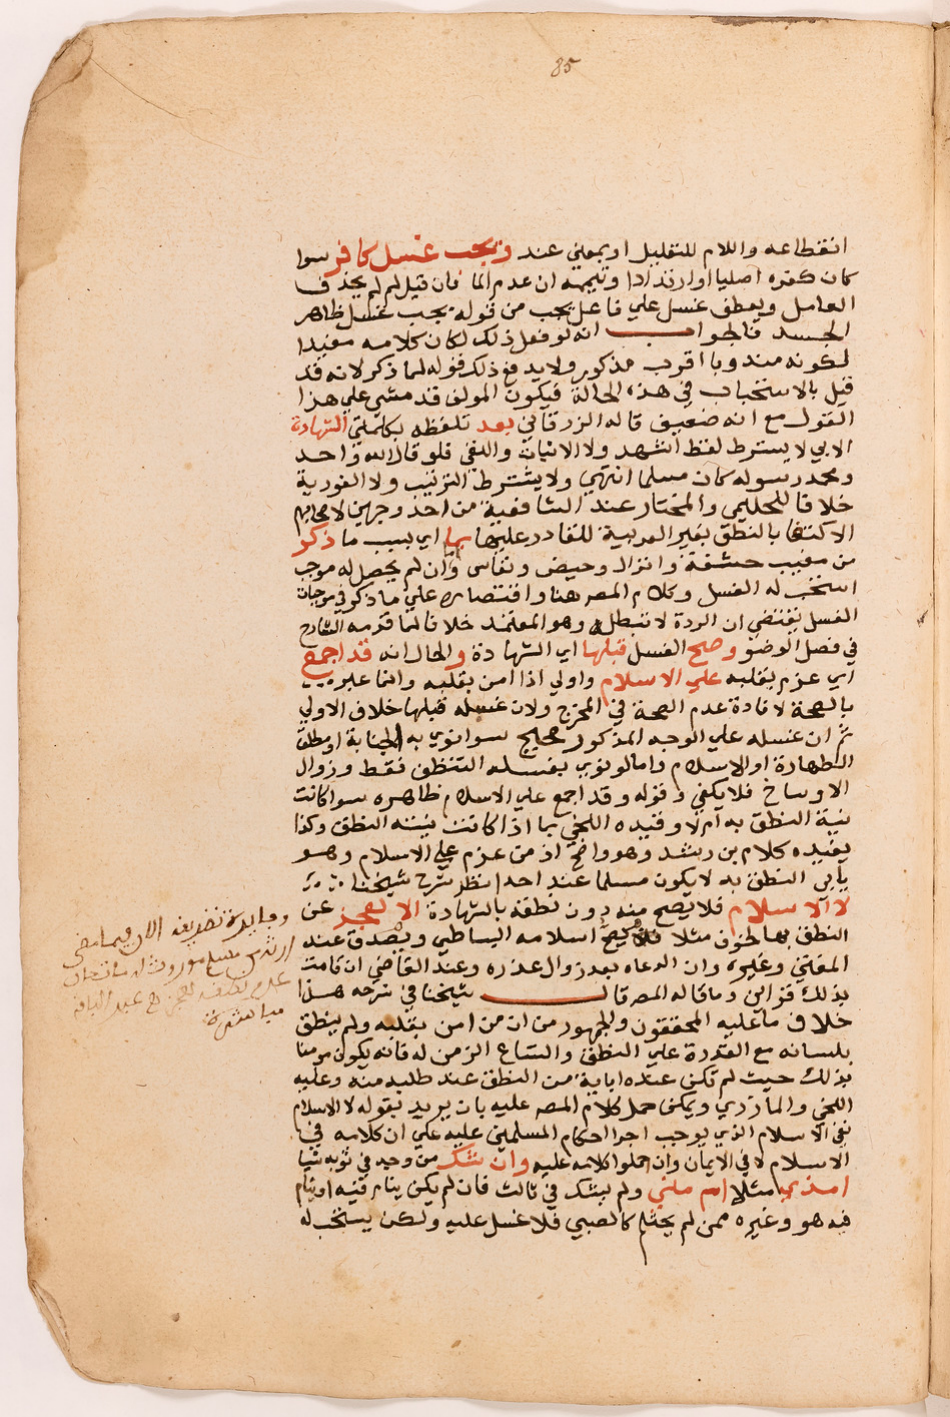 85
انقطاعه واللام للتقليل او بمعني عند ويجب غسل كافر سوا
كان كفره اصليا او ارتدادا وتيممه ان عدم الما فان قيل لم لم يحذف
العامل ويعطف غسل علي فاعل يجب من قوله يجب غسل ظاهر
الجسد فالجواب انه لو فعل ذلك لكان كلامه مفيدا
لكونه مندوبا اقرب مذكور ولابد مع ذلك فقوله لما ذكر لانه قد
قيل بالاستحباب في هذه الحالة فيكون المولف قد مشي علي هذا
القول مع انه ضعيف قاله الزرقاني بعد تلفظه بكلمتي الشهادة
الابي لا يسترط لفظ اشهد ولا الاثبات والنفي فلو قال الله واحد
ومحمد رسوله كان مسلما انتهي ولا يشترط الترتيب ولا الفورية
خلافا للحليمي والمختار عند الشافعية من احد وجهين لاصحابهم
الاكتفا بالنطق بغير العربية للقادر عليها بما اي بسبب ما ذكر
من مغيب حشفة وانزال وحيض ونفاس وان لم يحصل له موجب
استحب له الغسل وكلام المصه هنا واقتصاره علي ما ذكر في موجبات
الغسل يقتضي ان الردة لا تبطله وهو المعتمد خلافا لما قدمه الشارح
في فصل الوضو وصح الغسل قبلها اي الشهادة والحال انه قد اجمع
اي عزم بقلبه علي الاسلام واولي اذا امن بقلبه وانما عبر
بالصحة لافادة عدم الصحة في المخرج ولان غسله قبلها خلاف الاولي
ثم ان غسله علي الوجه المذكور صحيح سوا نوي به الجنابة او مطلق
الطهارة او الاسلام واما لو نوي بغسله التنظف فقط وزوال
الاوساخ فلا يكفي وقوله وقد اجمع علي الاسلام ظاهره سوا كانت
نيته النطق به ام لا وقيده اللخمي بما اذا كانت نيته النطق وكذا
يفيده كلام بن رشد وهو واضح اذ من عزم علي الاسلام وهو
يابي النطق به لا يكون مسلما عند احد انظر شرح شيخنا
لا الاسلام فلا يصح منه دون نطقه بالشهادة الا لعجز عن
النطق بها لخوف مثلا فيصح اسلامه البساطي ويصدق عند
المفتي وغيره وان ادعاه بعد زوال عذره وعند القاضي ان قامت
بذلك قراين وما قاله المصه قال شيخنا في شرحه هذا
خلاف ما عليه المحققون والجمهور من ان من امن بقلبه ولم ينطق
بلسانه مع القدرة علي النطق واتساع الزمن له فانه يكون مومنا
بذلك حيث لم تكن عنده اباية من النطق عند طلبه منه وعليه
اللخمي والمازري ويمكن حمل كلام المصه عليه بان يريد بقوله لا الاسلام
نفي الاسلام الذي يوجب اجرا احكام المسلمين عليه علي ان كلامه في
الاسلام لا في الايمان وان حملوا كلامه عليه وان شك من وجد في ثوبه شيا
امذي مثلا ام مني ولم يشك في ثالث فان لم يكن ينام فيه او ينام
فيه هو وغيره ممن لم يحتلم كالصبي فلا غسل عليه ولكن يستحب له
عبد الباقي